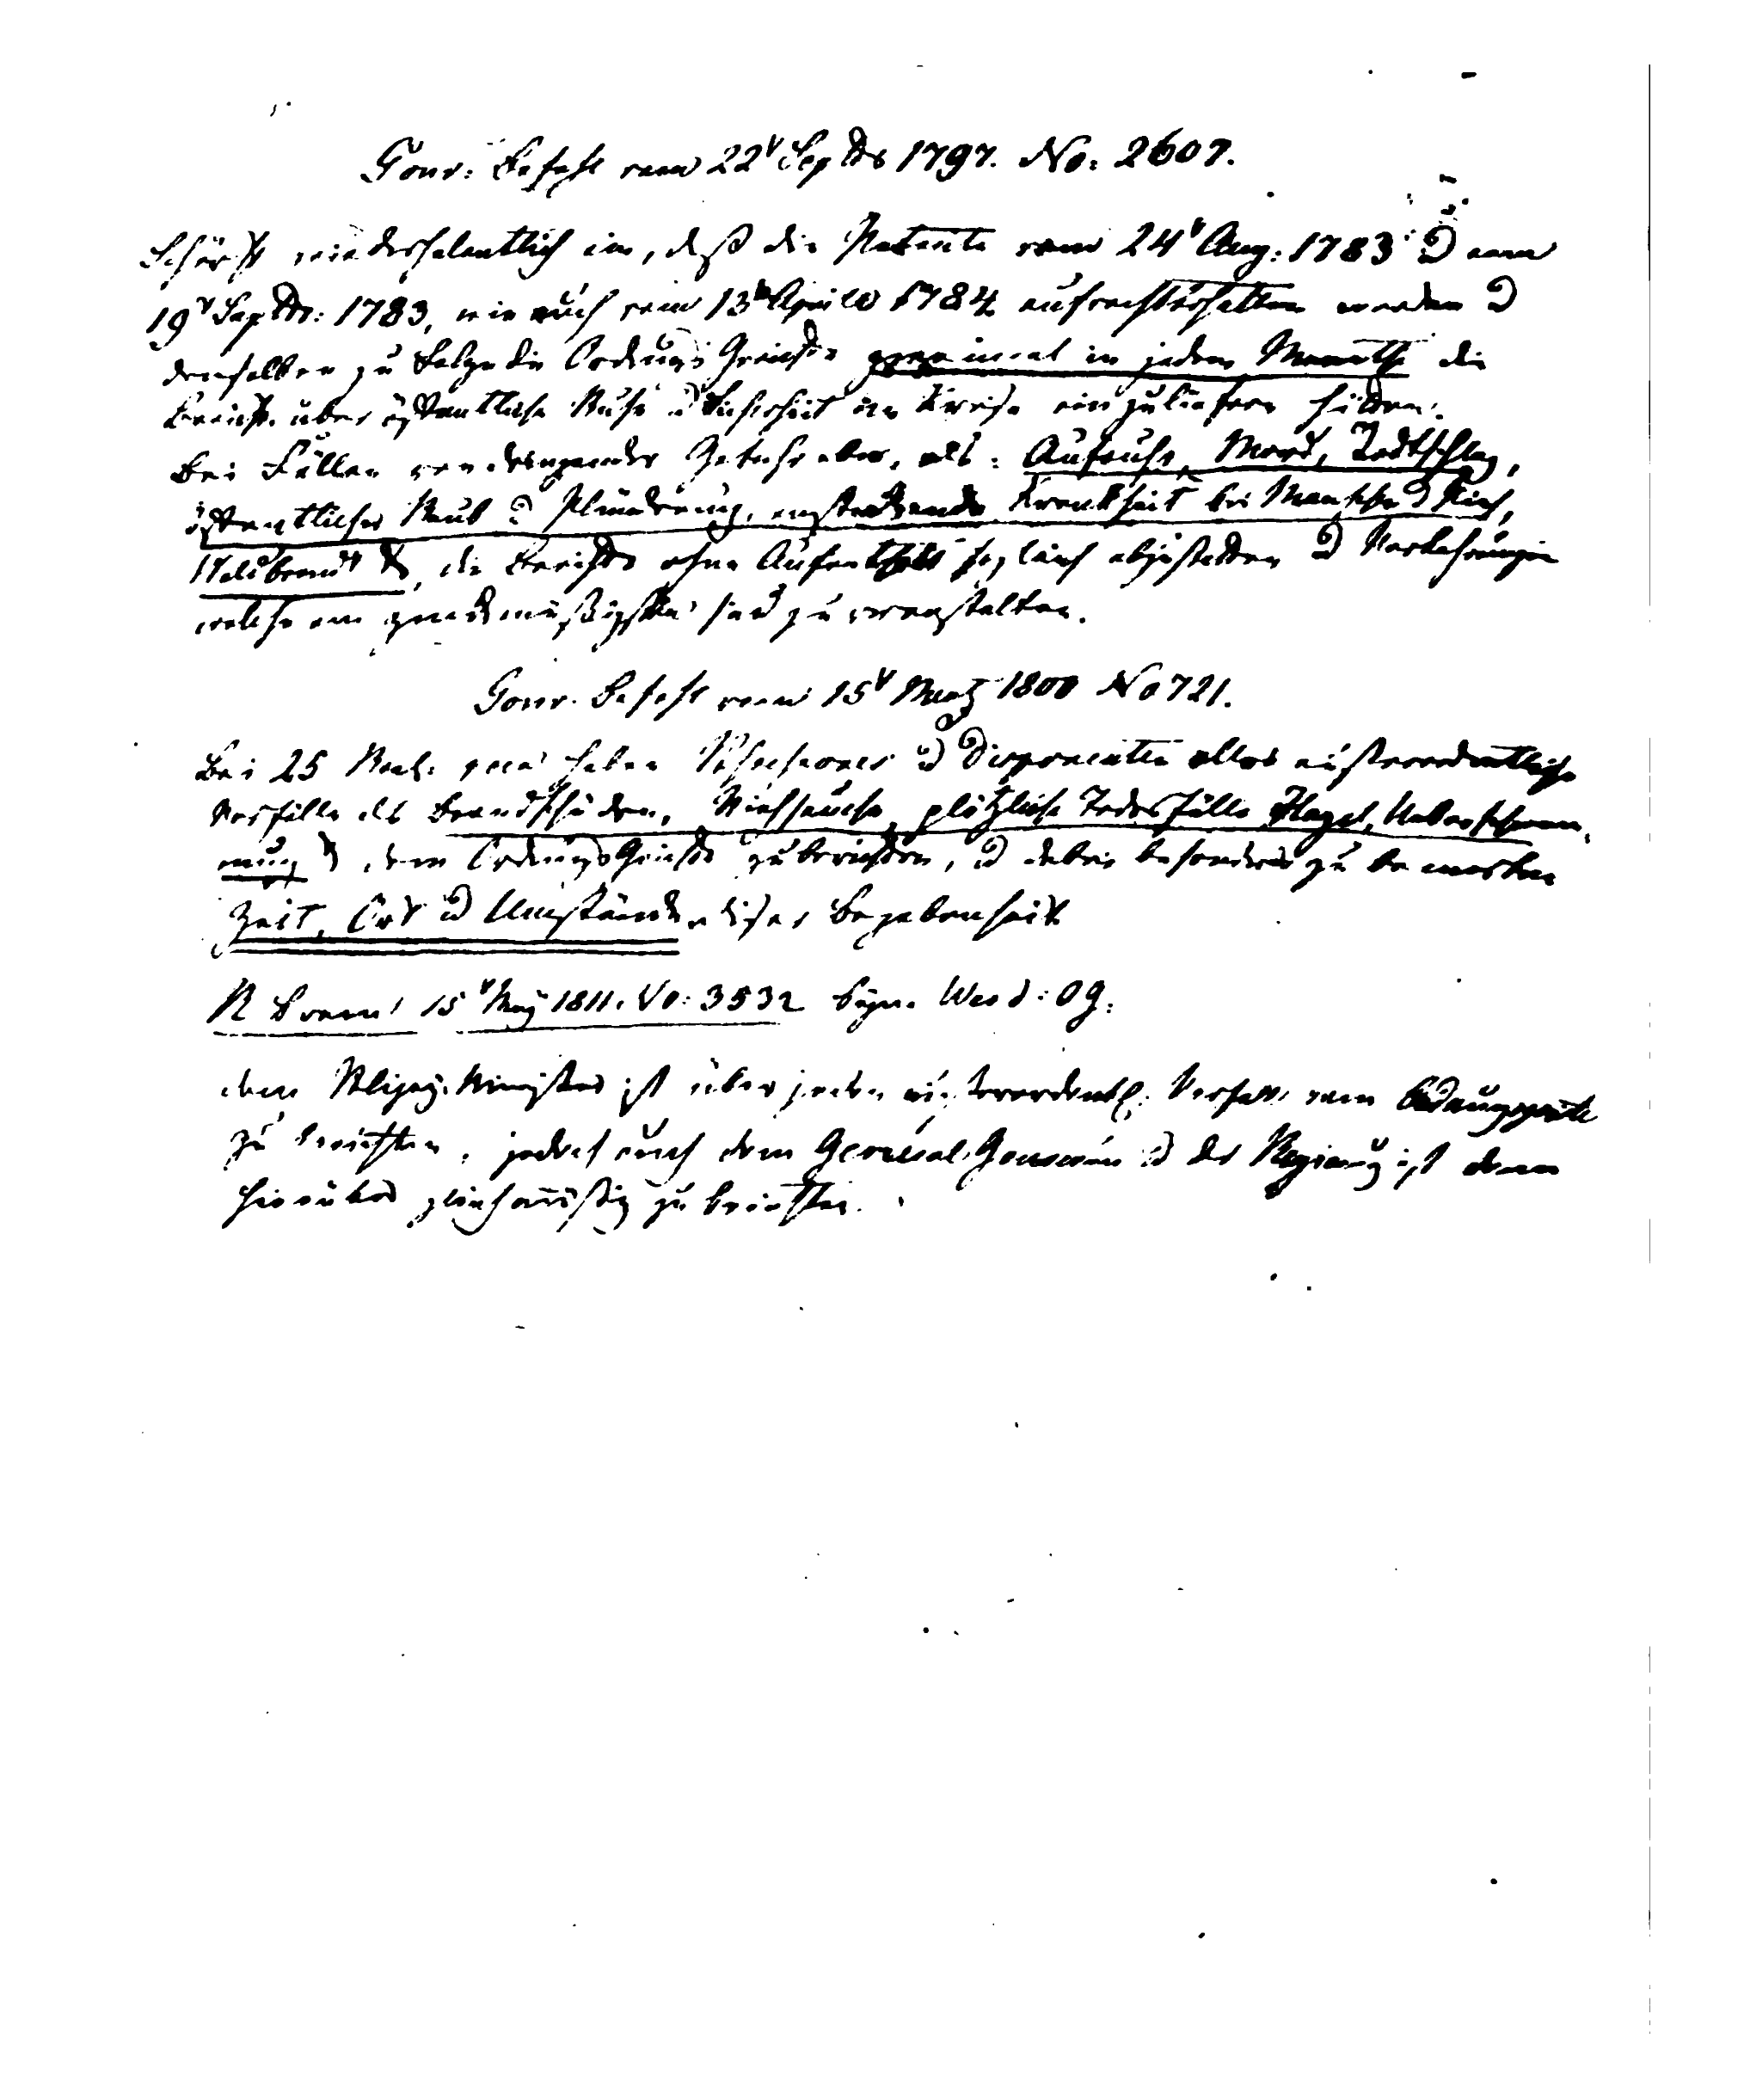 Gouv: Befehl vom 22t Septbr 1797. No: 2607.
Schärft wiederholentlich ein, daß die Patente vom 24t Aug: 1783 & vom
19t Septbr: 1783, wie auch vom 13t Aprill 1784 aufrechterhalten werden &
denselben zu Folge die Ordnungs Gerichte zweimal in jedem Monathe die
Berichte über öffentliche Ruhe & Sicherheit im Kreise einzuliefern hätten.
Bei Fällen von dringender Gefahr aber, als: Aufruhr, Mord, Todtschlag,
öffentlicher Raub & Plünderung, ansteckende Krankheit bei Menschen & Vieh,
Waldbrand, die Berichte ohne Aufenthalt sogleich abzustatten & Vorkehrungen
welche am zweckmäßigsten sind zu veranstalten.
Gouv. Befehl vom 15t Martz 1800 No 721.
Bei 25 Rbl. haben & Disponenten alles außerordentliche
Vorfälle als Brandschäden, Viehseuche, plötzliche Todesfälle Hagel, Ueberschwem-
mung dem Ordnungs Gerichte zu berichten, & dabei besonders zu bemerken
Zeit, Ort & Umstände dieser Begebenheit
R B vom 15t May 1811. No: 3532 OG.
dem Polizey. Minister ist über jeden außerordentl: Vorfall vom Ordnungsgericht
zu berichten, jedoch auch dem General. Gouverneur & der Regierung ist dann
hierüber gleichmäßig zu berichten.